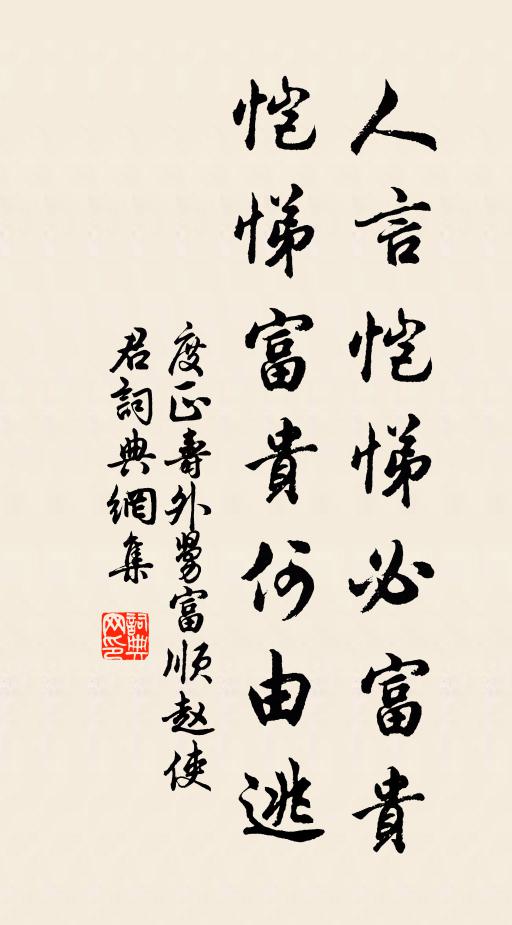 人言恺悌必富貴
恺悌富貴何由逃
度正壽外舅富順赵使
君詞典網集
詞典网印